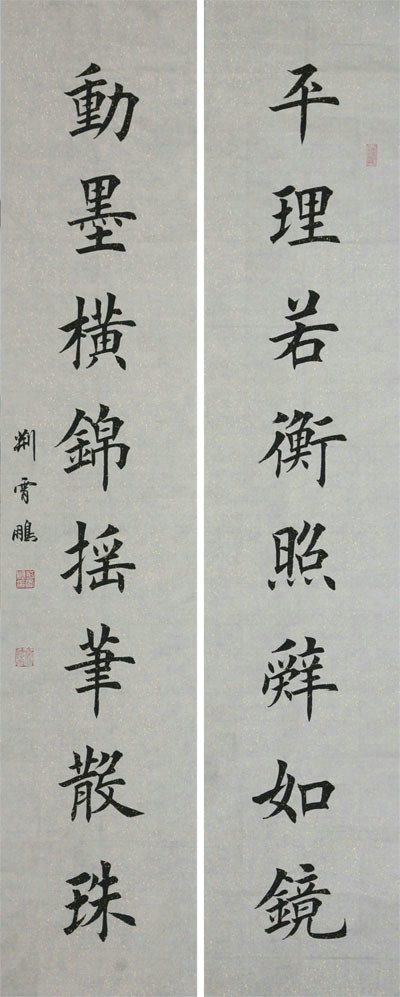 平理若衡照辞如鏡
動墨横錦揺筆散珠
荆霄鵬